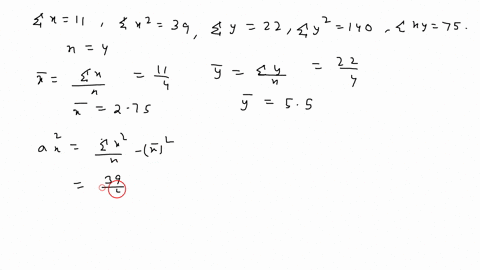 Σx = 11, Σx² = 39, Σy = 22, Σy² = 140, Σxy = 75.
n = 4
x̄ = Σx/n = 11/4
ȳ = Σy/n = 22/4
x̄ = 2.75
ȳ = 5.5
a²ₓ = Σx²/n - (x̄)²
= 39/4